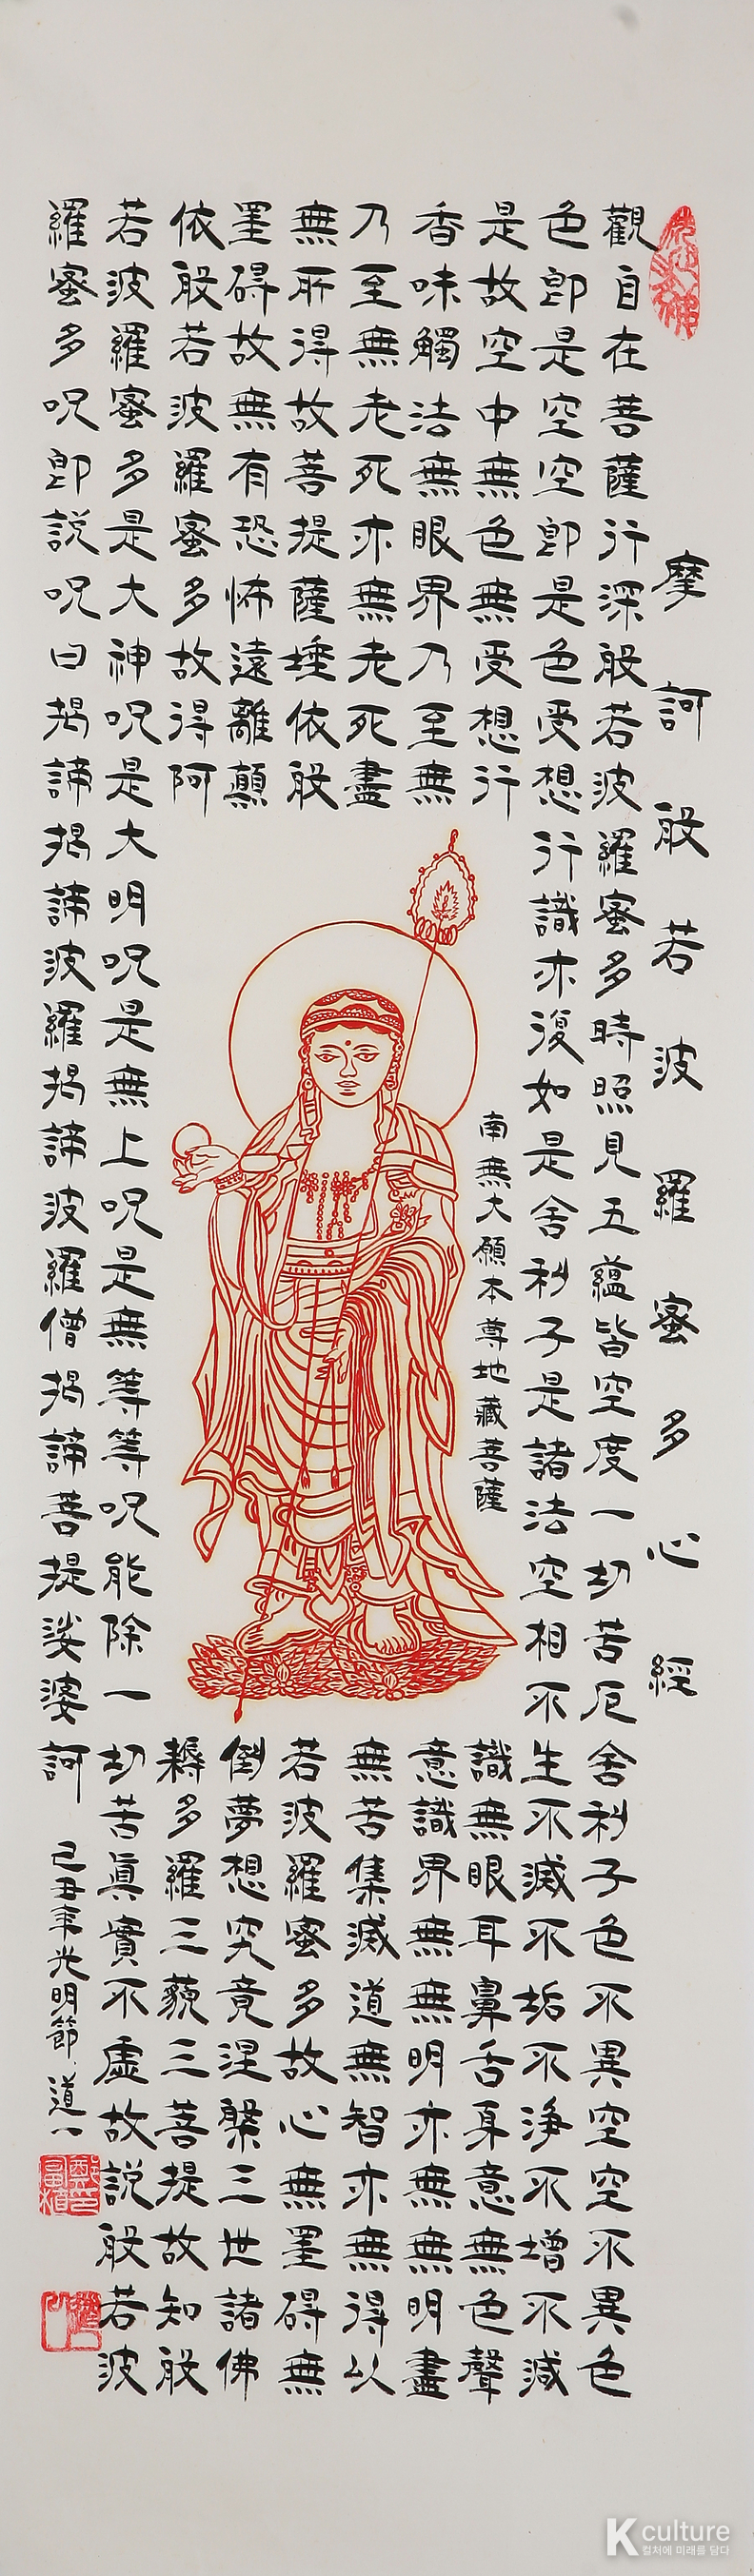 摩訶般若波羅蜜多心經
觀自在菩薩行深般若波羅蜜多時照見五蘊皆空度一切苦厄舍利子色不異空空不異色
色卽是空空卽是色受想行識亦復如是舍利子是諸法空相不生不滅不垢不淨不增不減
是故空中無色無受想行識無眼耳鼻舌身意無色聲
香味觸法無眼界乃至無意識界無無明亦無無明盡
乃至無老死亦無老死盡無苦集滅道無智亦無得以
無所得故菩提薩埵依般若波羅蜜多故心無罣碍無
罣碍故無有恐怖遠離顛倒夢想究竟涅槃三世諸佛
依般若波羅蜜多故得阿耨多羅三藐三菩提故知般
若波羅蜜多是大神呪是大明呪是無上呪是無等等呪能除一切苦眞實不虛故說般若波
羅蜜多呪卽說呪曰揭諦揭諦波羅揭諦波羅僧揭諦菩提娑婆訶
己丑年光明節 道一
南無大願本尊地藏菩薩
K culture
컬처에 미래를 담다